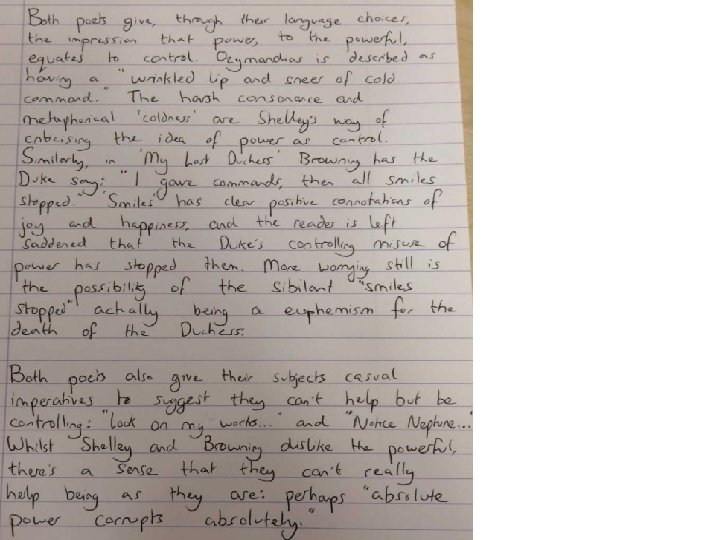 Both poets give, through their language choices,
the impression that power, to the powerful,
equates to control. Ozymandias is described as
having a "wrinkled lip and sneer of cold
command." The harsh consonance and
metaphorical 'coldness' are Shelley's way of
criticising the idea of power as control.
Similarly, in 'My Last Duchess' Browning has the
Duke say: "I gave commands, then all smiles
stopped." 'Smiles' has clear positive connotations of
joy and happiness, and the reader is left
saddened that the Duke's controlling misuse of
power has stopped them. More worrying still is
the possibility of the sibilant "smiles
stopped" actually being a euphemism for the
death of the Duchess.
Both poets also give their subjects casual
imperatives to suggest they can't help but be
controlling: "look on my works..." and "Notice Neptune..."
Whilst Shelley and Browning dislike the powerful,
there's a sense that they can't really
help being as they are: perhaps "absolute
power corrupts absolutely."